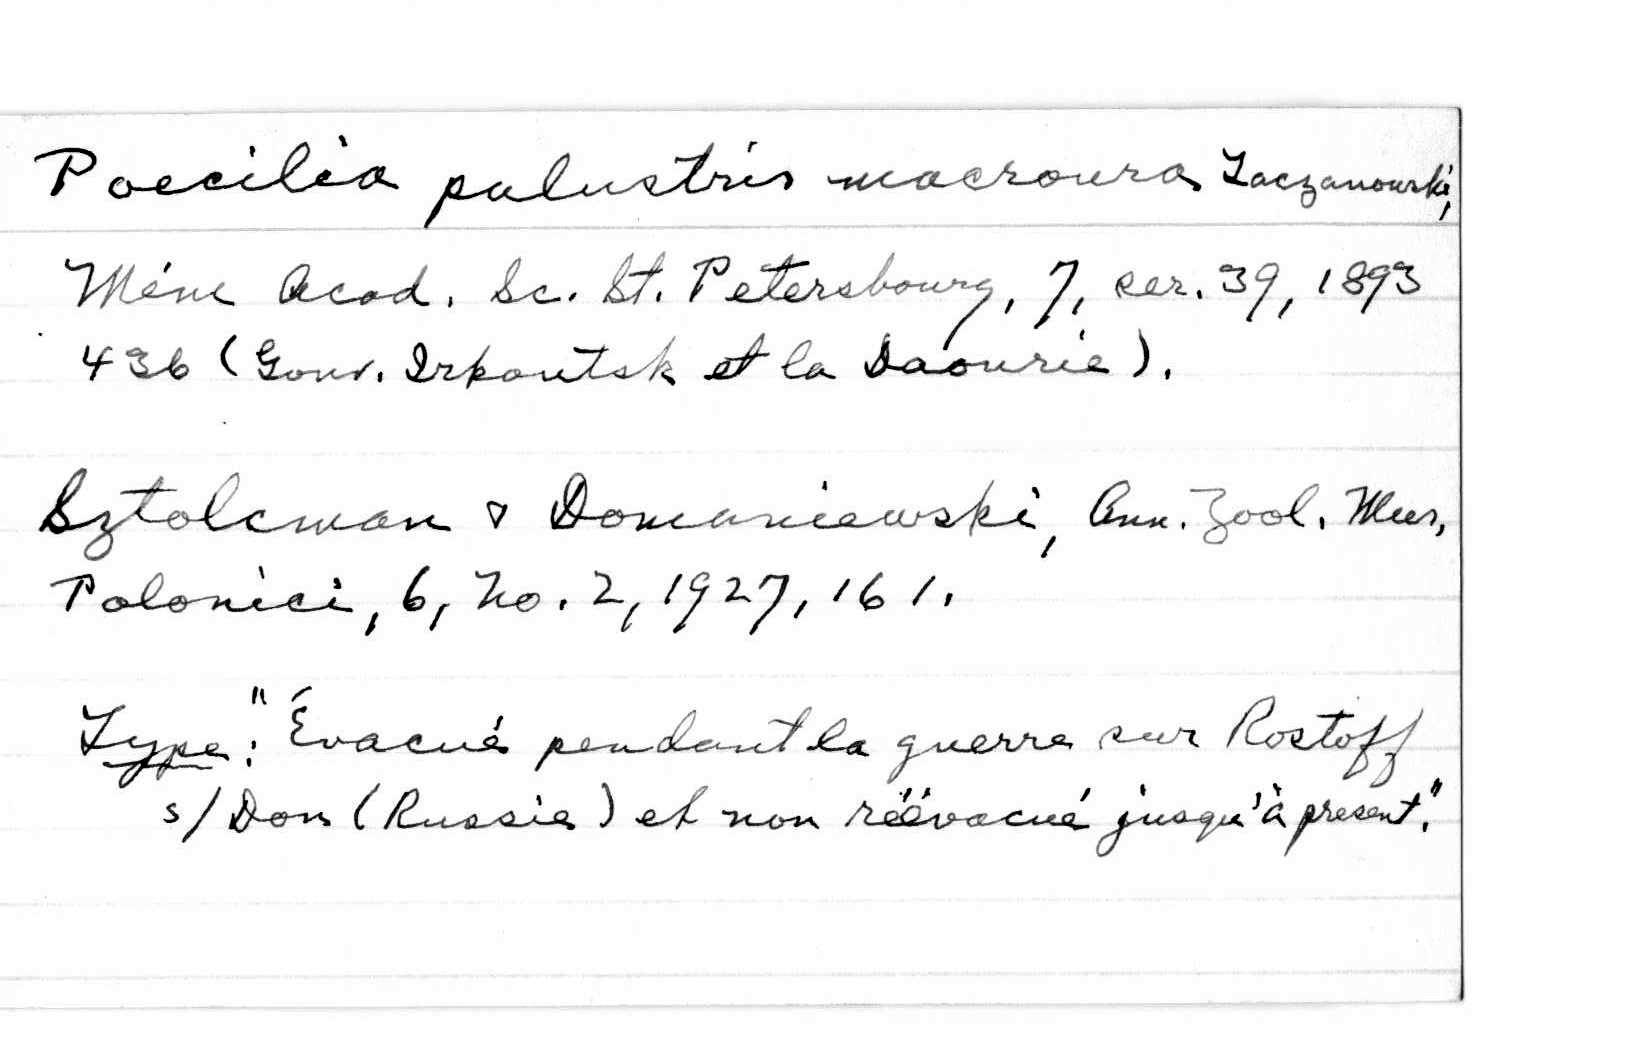 Poecilia palustris macroura Taczanowski,
Mém Acad. Sc. St. Petersbourg, 7, ser. 39, 1893
436 (Gouv. Irkoutsk et la Daourie).
Sztolcman & Domaniewski, Ann. Zool. Mus,
Polonici, 6, No. 2, 1927, 161.
Type: "Évacué pendant la guerre sur Rostoff
s/Don (Russie) et non réévacué jusqu'à present."